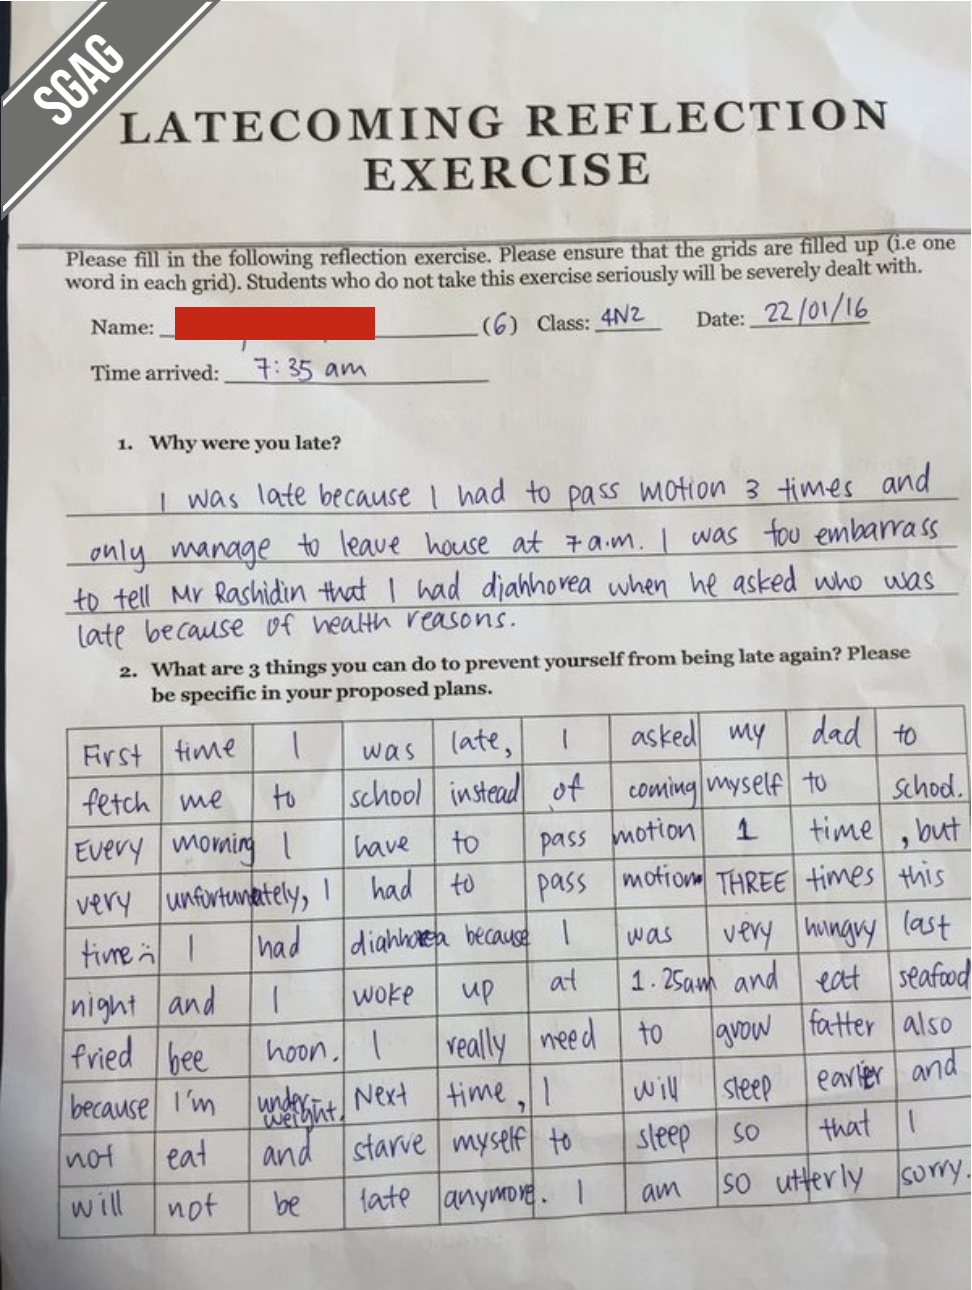 SGAG
LATECOMING REFLECTION
EXERCISE
Please fill in the following reflection exercise. Please ensure that the grids are filled up (i.e one
word in each grid). Students who do not take this exercise seriously will be severely dealt with.
Name: (6) Class: 4N2 Date: 22/01/16
Time arrived: 7:35 am
1. Why were you late?
I was late because I had to pass motion 3 times and
only manage to leave house at 7 a.m. I was too embarrass
to tell Mr Rashidin that I had diahhorea when he asked who was
late because of health reasons.
2. What are 3 things you can do to prevent yourself from being late again? Please
be specific in your proposed plans.
First time I was late, I asked my dad to
fetch me to school instead of coming myself to school.
Every morning I have to pass motion 1 time , but
very unfortunately, I had to pass motion THREE times this
time :( I had diahhorea because I was very hungry last
night and I woke up at 1.25am and eat seafood
fried bee hoon. I really need to grow fatter also
because I'm underweight. Next time, I will sleep earlier and
not eat and starve myself to sleep so that I
will not be late anymore. I am so utterly sorry.